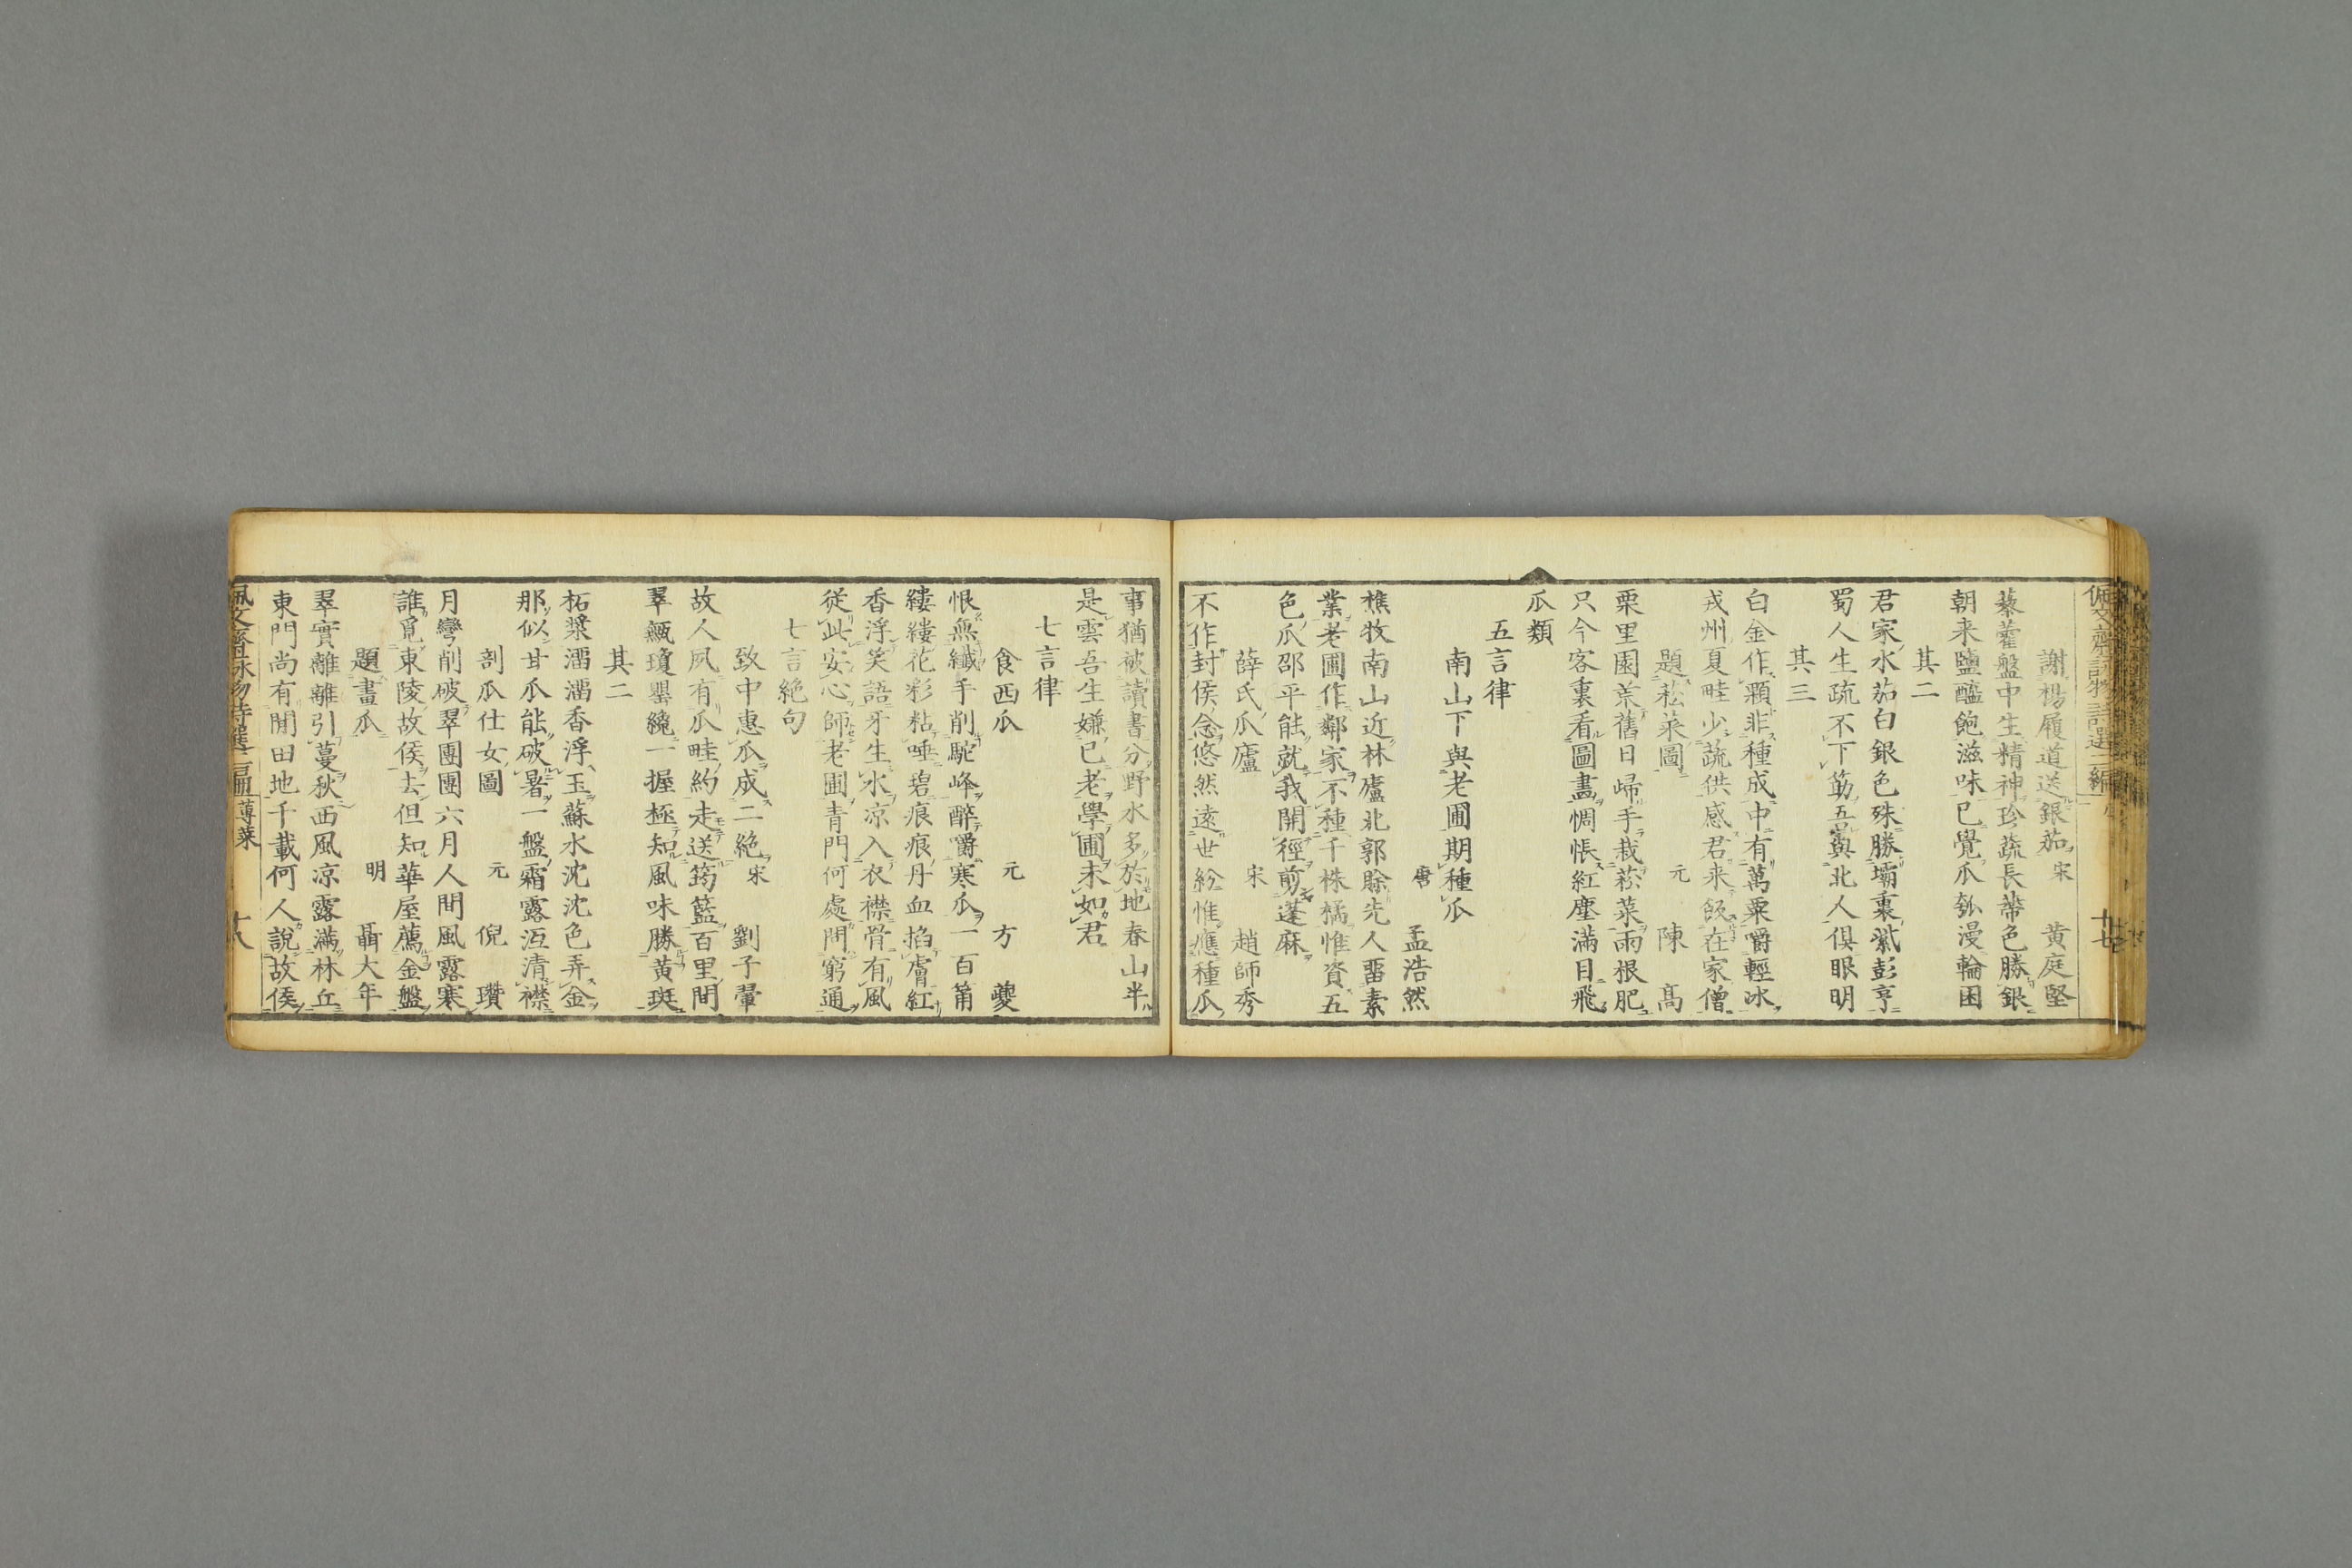 佩文齋詠物詩選二編
謝楊履道送銀茄 宋 黄庭堅
藜藿盤中生精神珍蔬長蔕色勝銀
朝来鹽醯飽滋味已覺瓜瓠漫輪囷
其二
君家水茄白銀色殊勝壩裏紫彭亨
蜀人生疏不下筯吾與北人俱眼明
其三
白金作顆非種成中有萬粟嚼輕冰
戎州夏畦少蔬供感君来飯在家僧
題菘菜圖 元 陳高
栗里園荒舊日歸手栽菘菜雨根肥
只今客裏看圖畫惆悵紅塵滿目飛
瓜類
五言律
南山下與老圃期種瓜
唐 孟浩然
樵牧南山近林廬北郭賖先人畱素
業老圃作鄰家不種千株橘惟資五
色瓜邵平能就我開徑剪蓬麻
薛氏瓜廬 宋 趙師秀
不作封侯念悠然遠世紛惟應種瓜
事猶被讀書分野水多於地春山半
是雲吾生嫌已老學圃未如君
七言律
食西瓜 元 方夔
恨無纖手削駝峰醉嚼寒瓜一百筩
縷縷花衫粘唾碧痕痕丹血掐膚紅
香浮笑語牙生水凉入衣襟骨有風
従此安心師老圃青門何處問窮通
七言絶句
致中惠瓜成二絶 宋 劉子翬
故人夙有瓜畦約走送筠籃百里間
翠瓤瓊罌纔一握極知風味勝黄斑
其二
柘漿溜溜香浮玉蘇水沈沈色弄金
那似甘瓜能破暑一盤霜露洹清襟
剖瓜仕女圖 元 倪瓚
月彎削破翠團團六月人間風露寒
誰覓東陵故侯去但知華屋薦金盤
題畫瓜 明 聶大年
翠實離離引蔓秋西風凉露滿林丘
東門尚有閒田地千載何人說故侯
佩文齋詠物詩選二編 蓴菜 十八